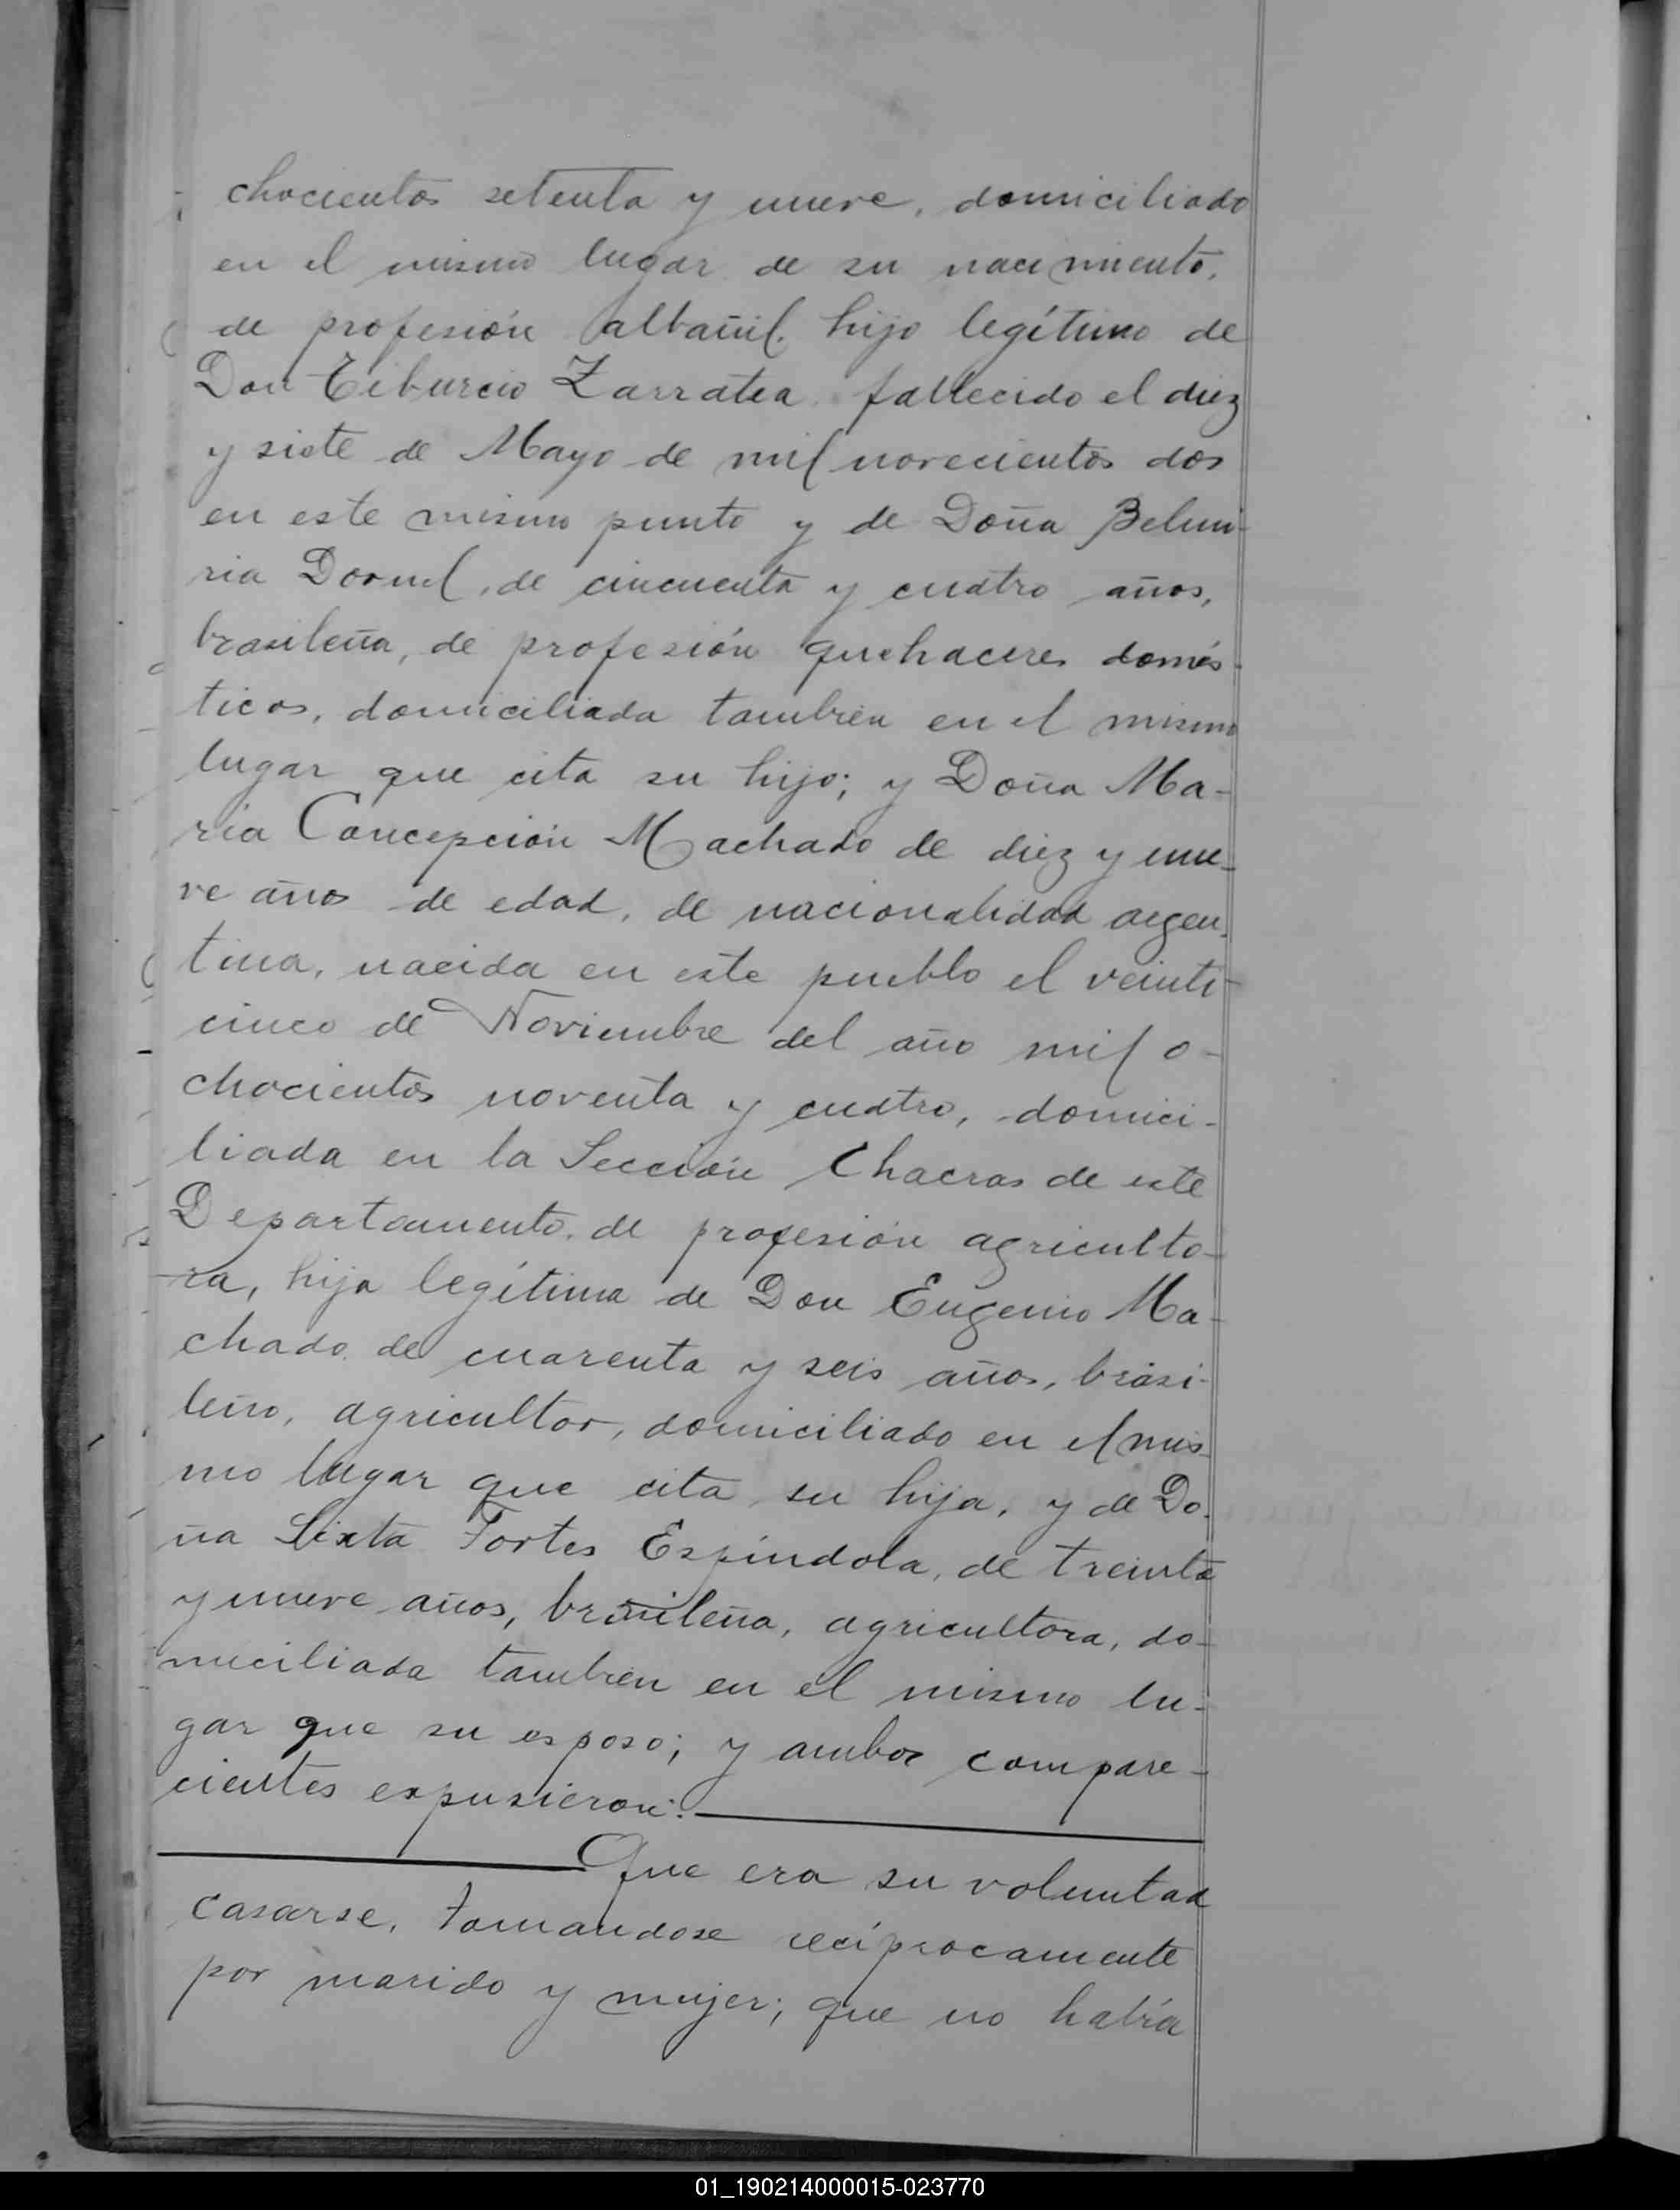 chocientos setenta y nueve, domiciliado
en el mismo lugar de su nacimiento,
de profesión albañil, hijo legítimo de
Don Tiburcio Zarratea fallecido el diez
y siete de Mayo de mil novecientos dos
en este mismo punto y de Doña Belmi-
ria Dornel, de cincuenta y cuatro años,
brasileña, de profesión quehaceres domés-
ticos, domiciliada también en el mismo
lugar que cita su hijo; y Doña Ma-
ría Concepción Machado de diez y nue-
ve años de edad, de nacionalidad argen-
tina, nacida en este pueblo el veinti-
cinco de Noviembre del año mil o-
chocientos noventa y cuatro, domici-
liada en la Sección Chacras de este
Departamento, de profesión agriculto-
ra, hija legítima de Don Eugenio Ma-
chado de cuarenta y seis años, brasi-
leño, agricultor, domiciliado en el mis-
mo lugar que cita su hija, y de Do-
ña Sixta Fortes Espíndola, de treinta
y nueve años, brasileña, agricultora, do-
miciliada también en el mismo lu-
gar que su esposo; y ambos compare-
cientes expusieron:
Que era su voluntad
casarse, tomandose recíprocamente
por marido y mujer; que no había
01_190214000015-023770